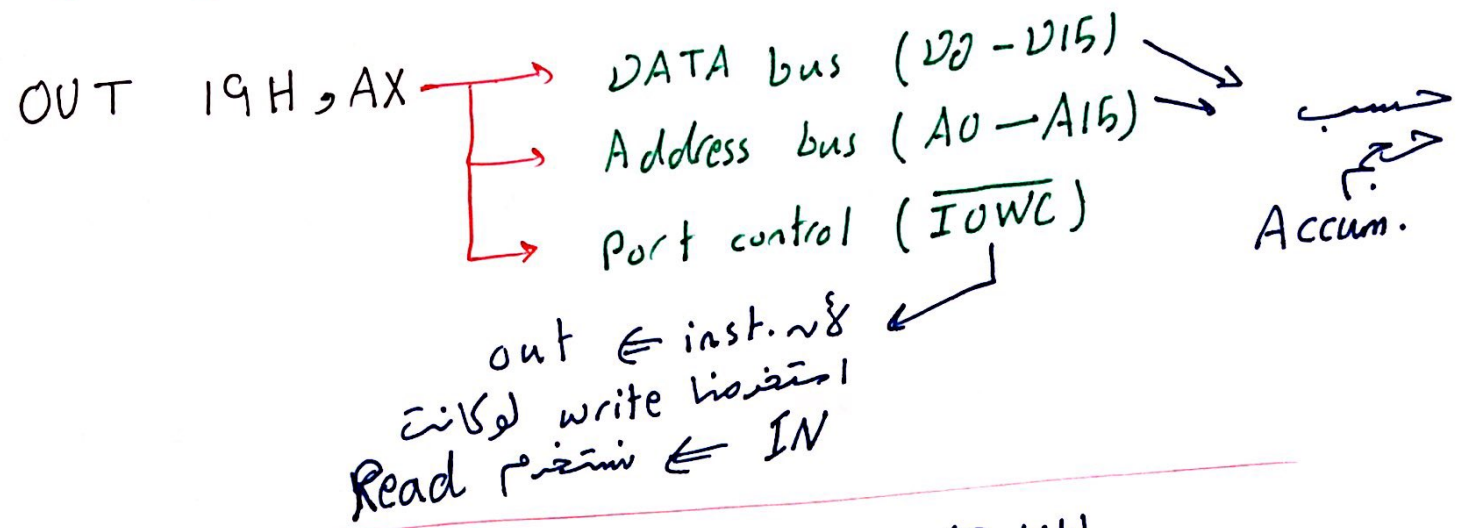 OUT 19H, AX
DATA bus (D0 - D15)
Address bus (A0 - A15)
Port control (IOWC)
حسب
حجم
Accum.
لأن inst. ⇐ out
استخدمنا write لو كانت
IN ⇐ نستخدم Read